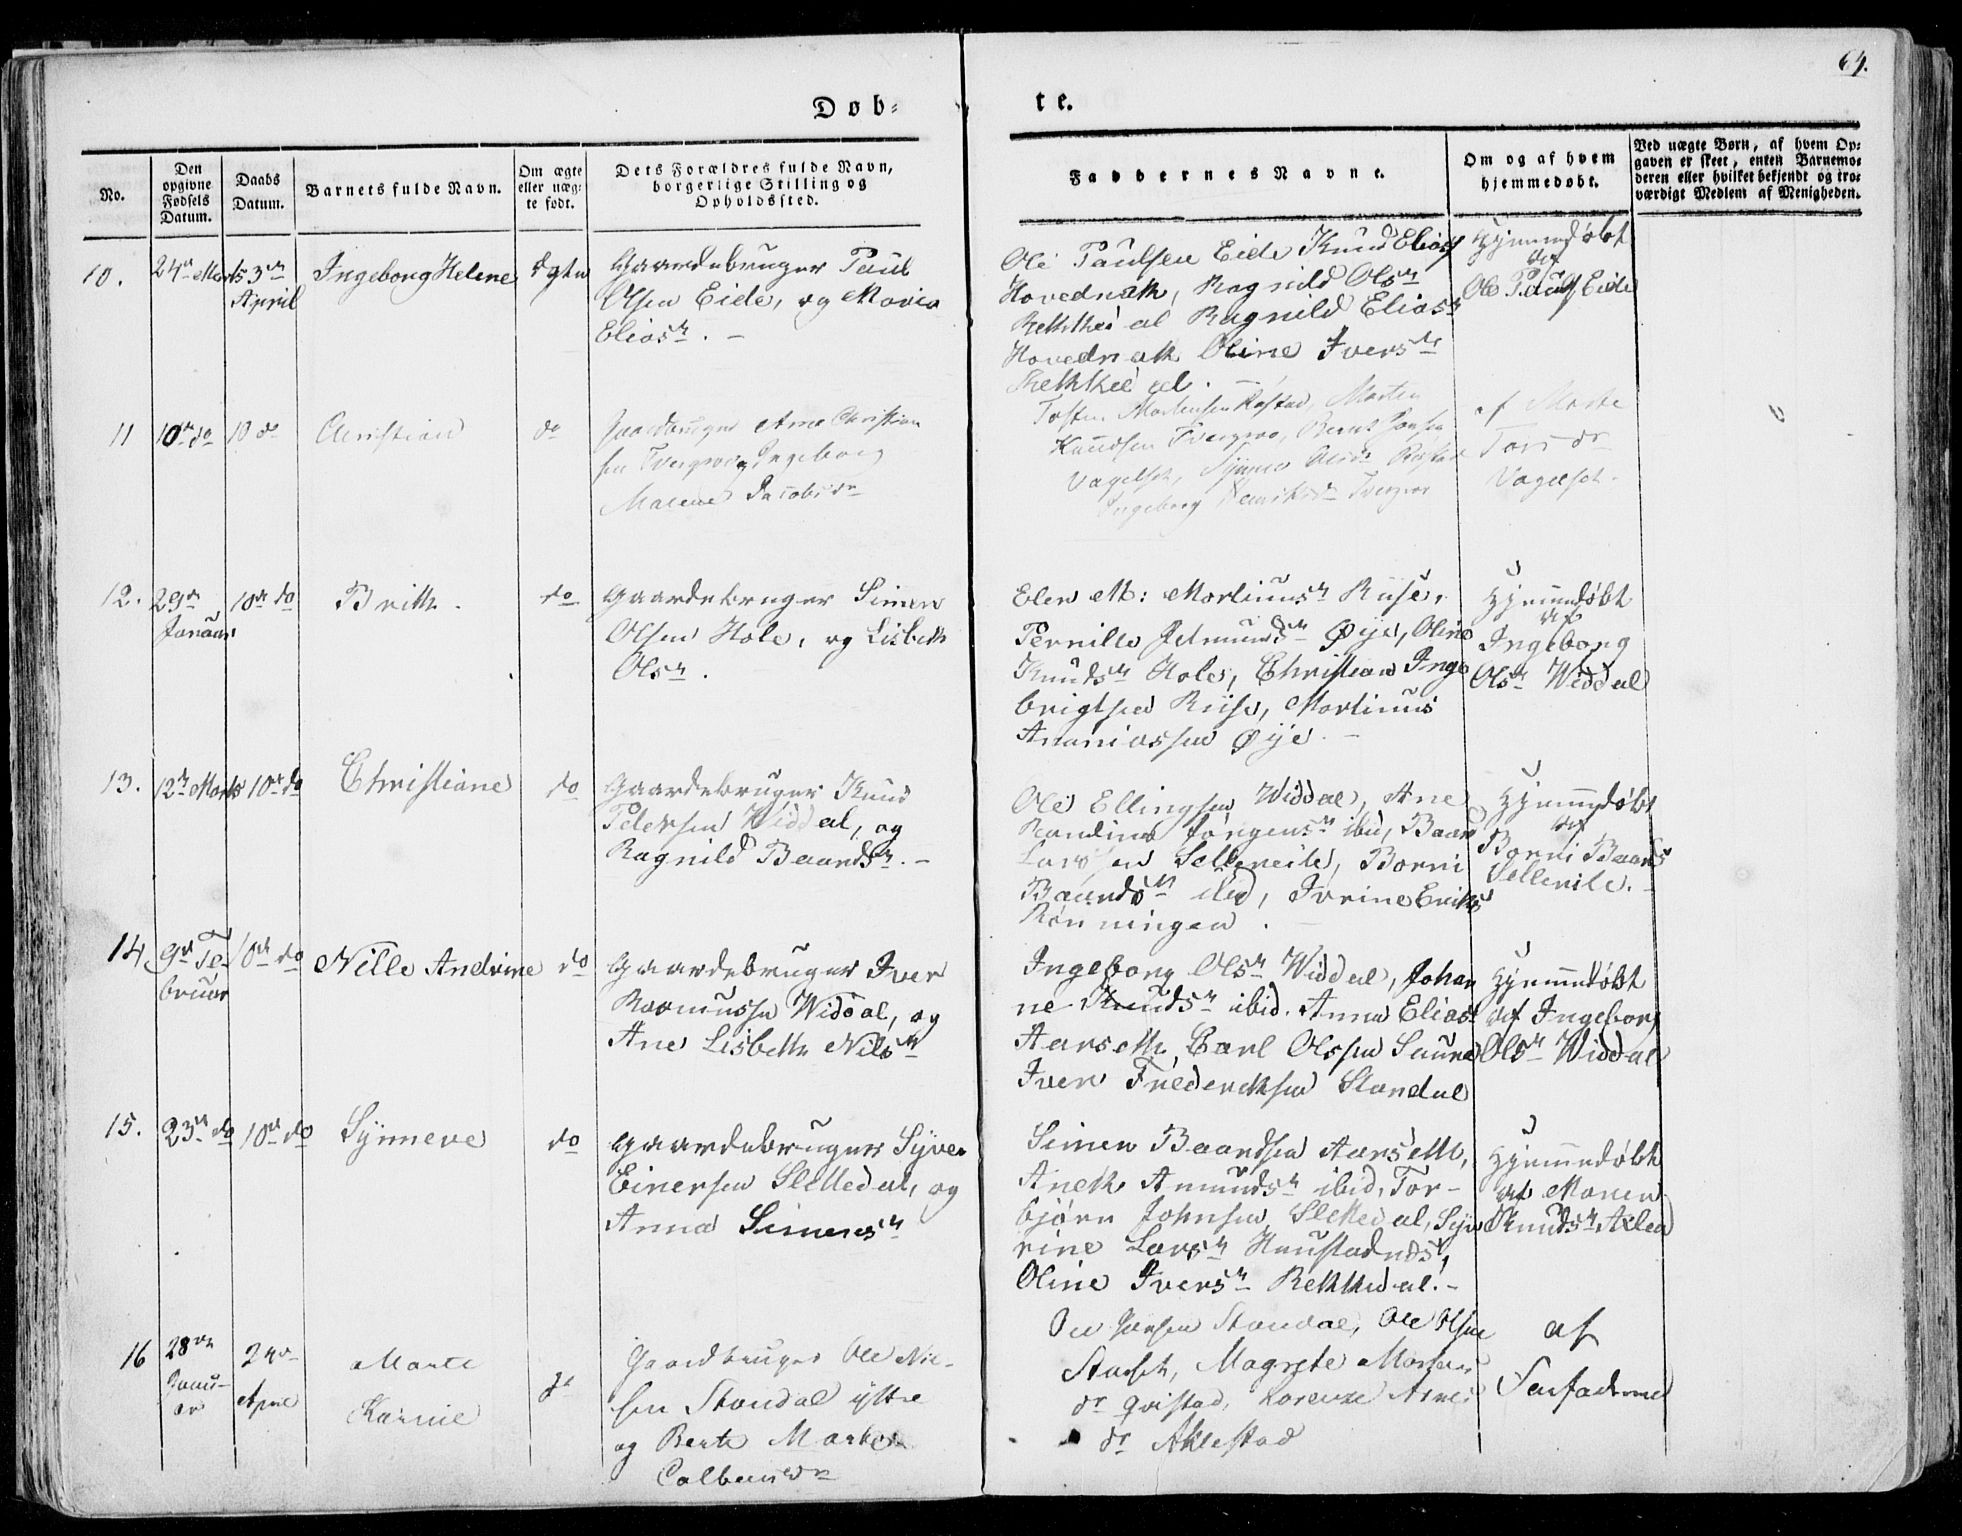 64.
Døb-
te.
No.
Den opgivne Fødsels Datum.
Daabs Datum.
Barnets fulde Navn.
Om ægte eller uægte født.
Dets Forældres fulde Navn, borgerlige Stilling og Opholdssted.
Faddernes Navne.
Om og af hvem hjemmedøbt.
Ved uægte Børn, af hvem Opgaven er skeet, enten Barnemoderen eller hvilket bekjendt og troværdigt Medlem af Menigheden.
10.
24de Marts
3die
April
Ingeborg Helene
ægte
Gaardebruger Paul
Olsen Eide, og Maria
Eliasdr. -
Ole Paulsen Eide Knud Elias
Hovednak, Ragnild Olsdr
Rekkedal Ragnild Eliasdr
Hovednak Oline Iversdr
Rekkedal.
Hjemmedøbt
af
Ole Pauls Eide
11
10de do
10 do
Christian
do
Gaardbruger Arne Christian
sen Tvergroe og Ingeborg
Malene Jacobsdr
Morten
Knudsen Tvergroe, Bernt
Vagelset, Synneve Olsdr
Ingeborg Henriksdr Tvergroe
af Marte
dr
Vagelset.
12.
29de
Januar
10de do
Brith.
do
Gaardebruger Simen
Olsen Hole, og Lisbeth
Olsdr.
Elen M: Martinusdr Riise,
Pernille Øye, Oline
Knudsdr Hole, Christian Inge
brigtsen Riise, Martinus
Ananiassen Øye. -
Hjemmedøbt
af
Ingeborg
Olsdr Widdal
13.
12te Marts
10de do
Christiane
do
Gaardebruger Knud
Pedersen Widdal, og
Ragnild Baardsdr. -
Ole Ellingsen Widdal, Ane
Randine Jørgensdr ibid, Baard
Larssen Sellereite, Borni
Baardsdr ibid, Ivrine Eriks
Rønningen.
Hjemmedøbt
af
Borni Baards
Sellereite. -
14.
9de Fe-
bruar
10de do
Nille Andrine
do
Gaardebruger Iver
Rasmussen Widdal, og
Ane Lisbeth Nilsdr
Ingeborg Olsdr Widdal, Johan
ne Knudsdr ibid. Anna Eliasd
Aarseth, Carl Olssen Saure
Iver Frederiksen Standal
Hjemmedøbt
af Ingeborg
Olsdr Widdal
15.
23de do
10de do
Synneve
do
Gaardebruger Syver
Einersen Slettedal, og
Anna Simensdr
Simen Baardsen Aarseth,
Aneth Amundsdr ibid, Tor-
bjørn Johnsen Slettedal, Syve
rine Larsdr Haustadnes,
Oline Iversdr Rekkedal. -
Hjemmedøbt
af Maren
Knudsdr
16
28de
Janu-
ar
24de
April
Marte
Karine
do
Gaardbruger Ole Nil-
sen Standal ytre
og Berte Marte
Colbeinsdr
Standal, Ole Olsen
Magrete
dr Qvistad, Lorentze Arne
dr Aklestad
af